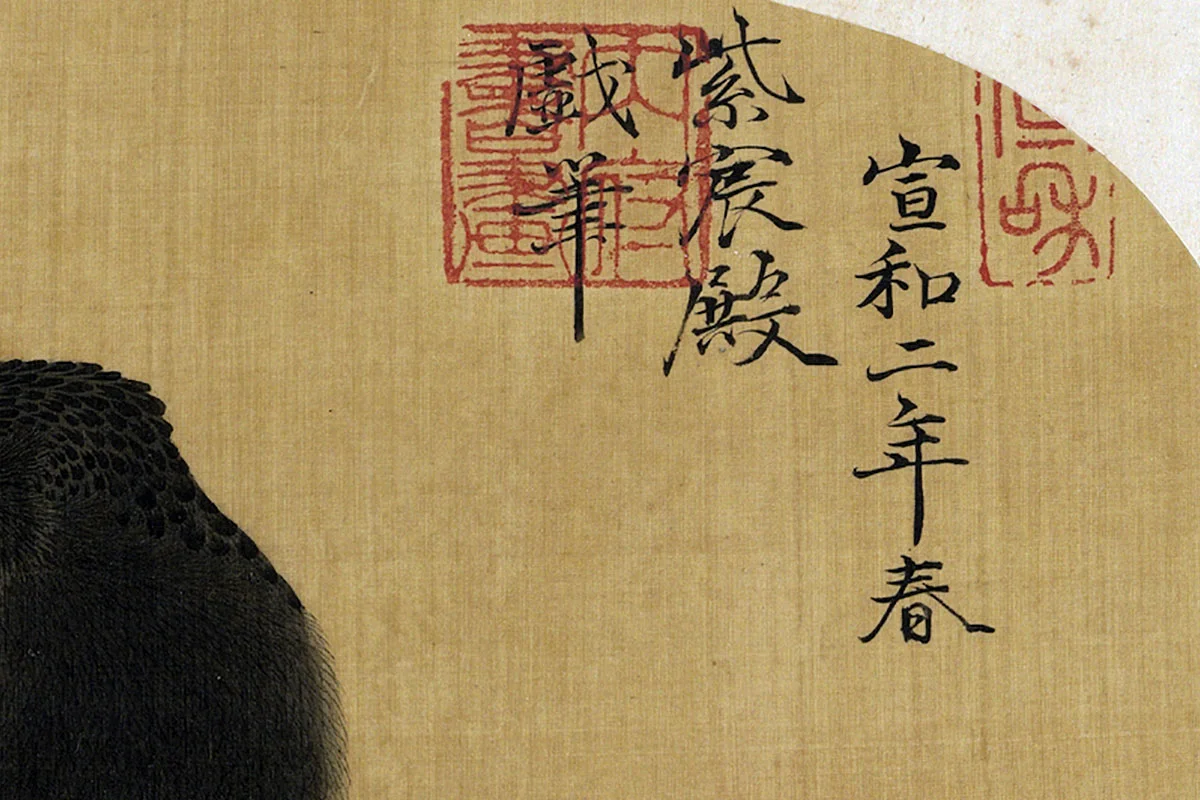 宣和二年春
紫宸殿
戲筆